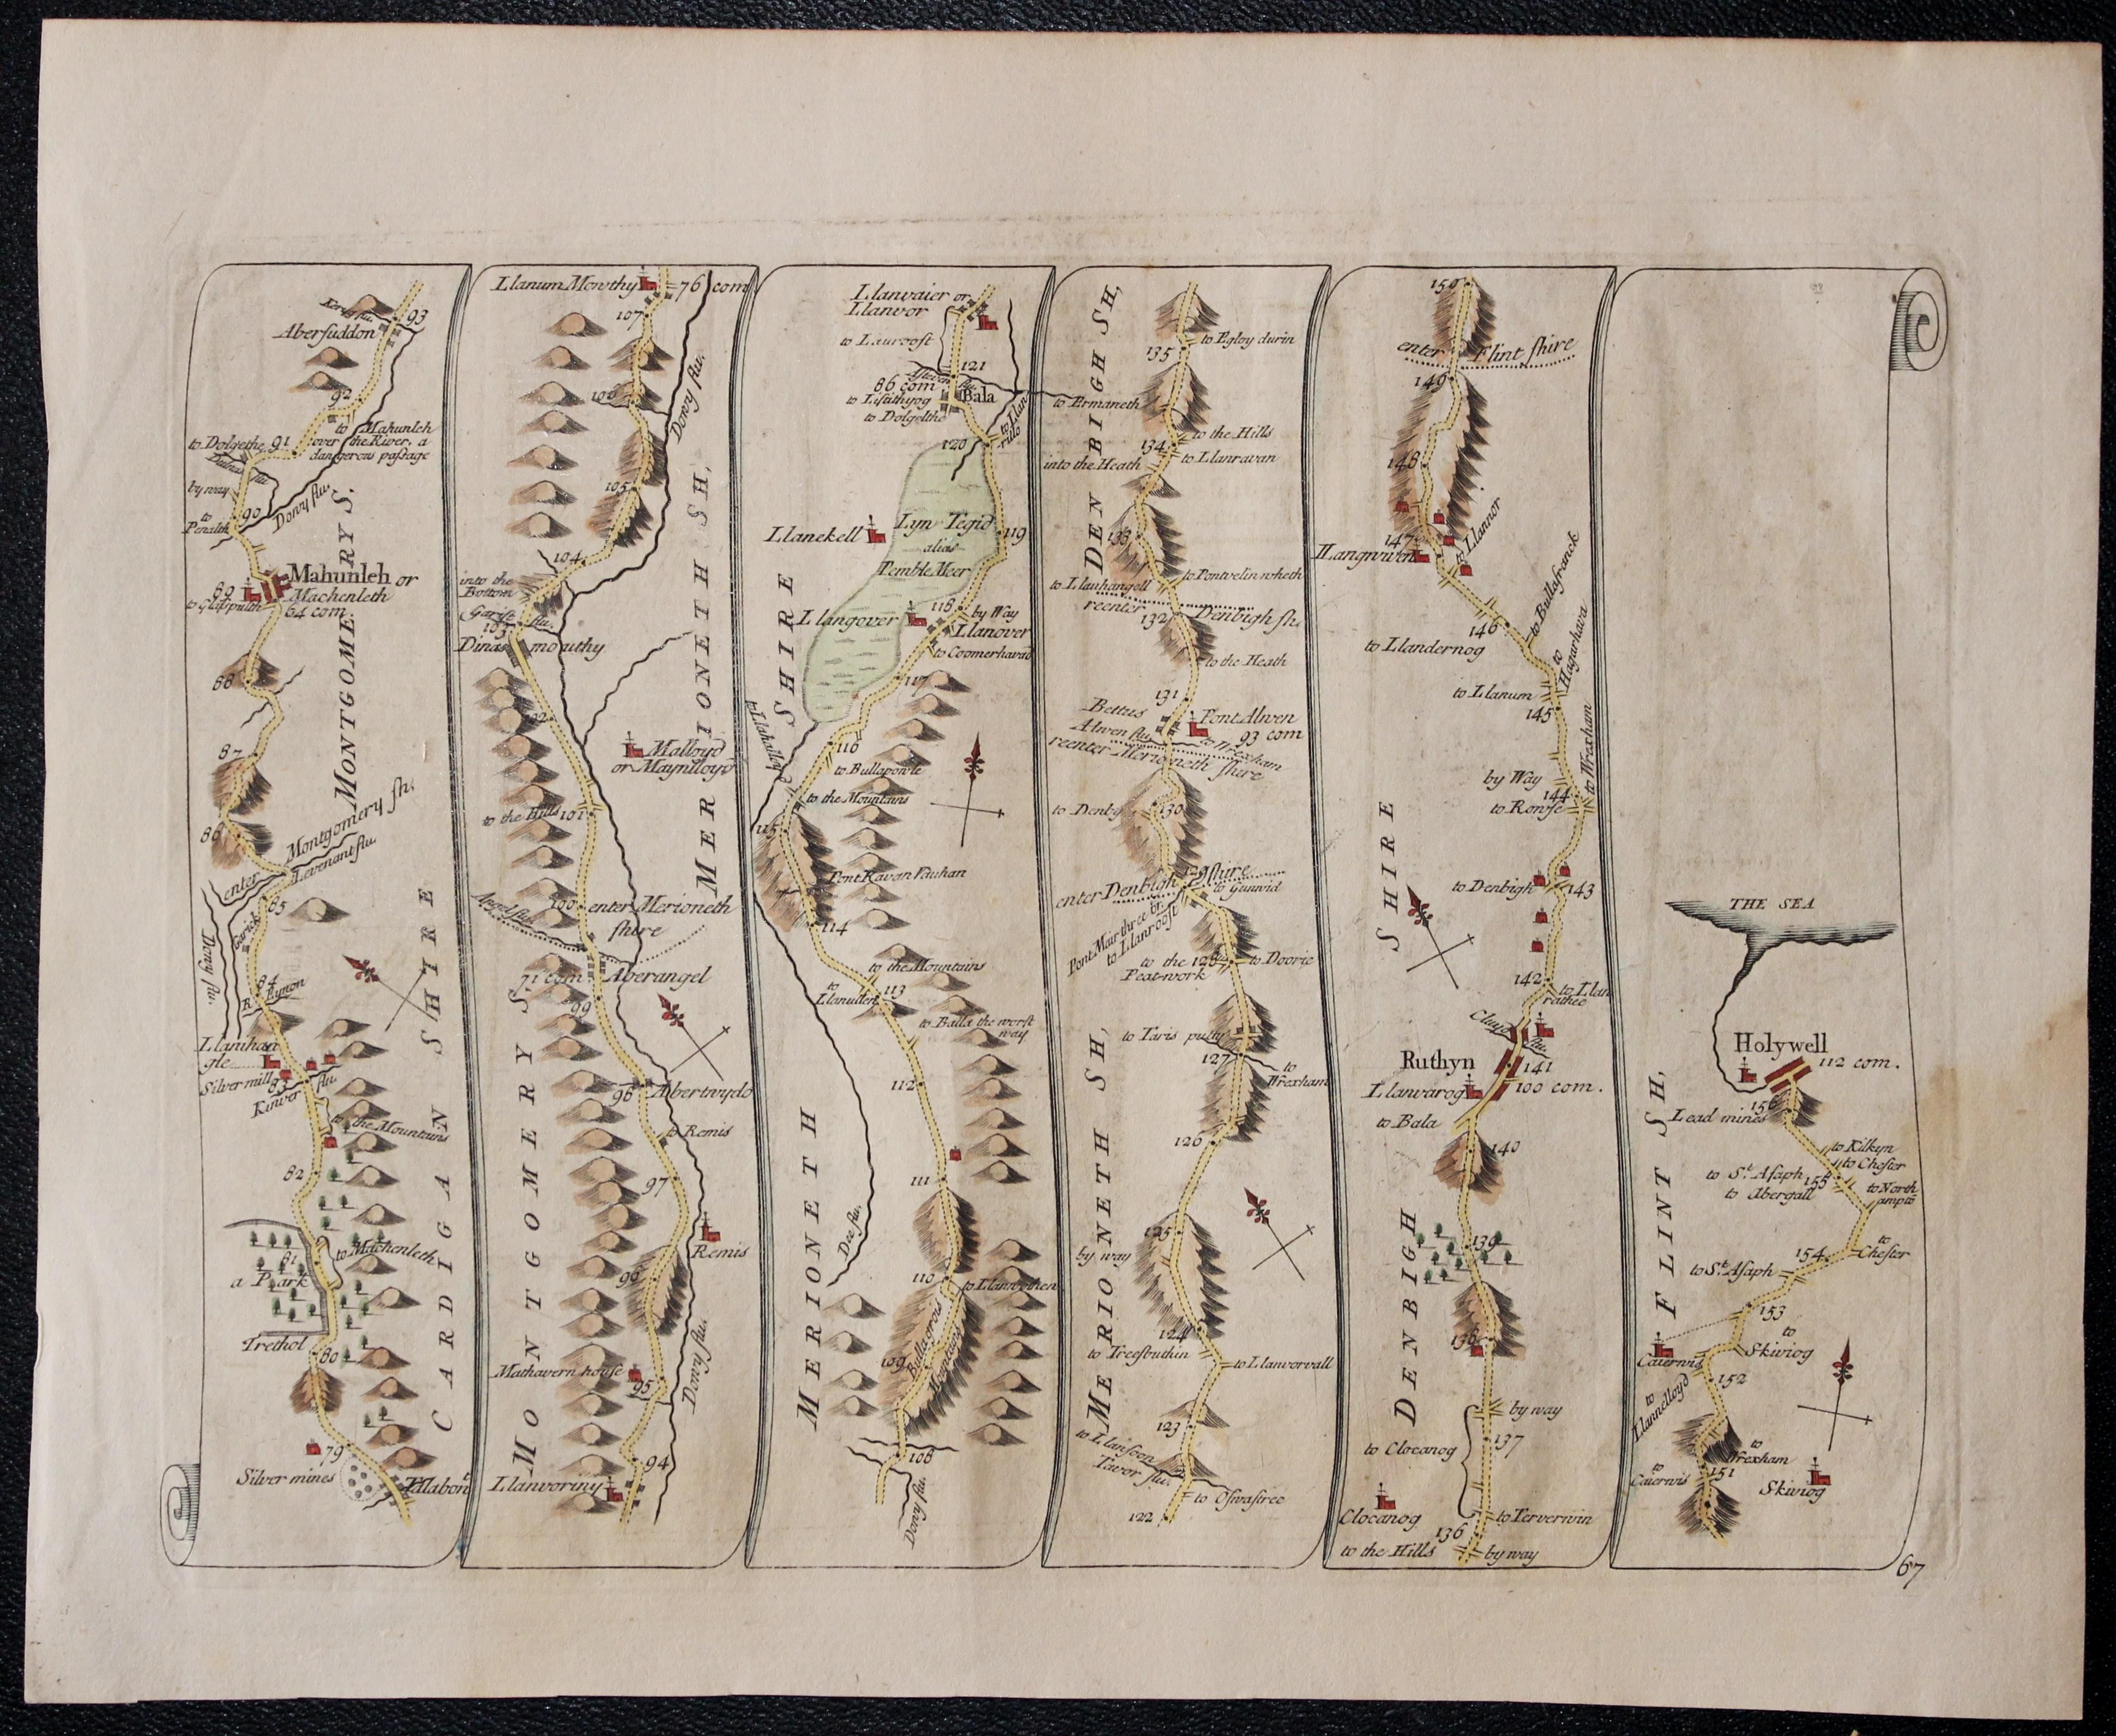 Kerig flu.
93
Abersuddon
92
to Mahunleh
over the River, a
dangerous passage
to Dolgethe
91
Dulnas flu.
by way
Dovy flu.
to
Penalth
90
MONTGOMERY S.
Mahunleh or
Machenleth
64 com.
89
88
87
86
Montgomery sh.
enter
Levenant flu.
85
Garick
Dovy flu.
84
R. Eynon
Llanihan
gle
Silver mill
83
Kinver flu.
to the Mountains
82
CARDIGAN SHIRE
to Machenleth
81
a Park
Trethol
80
79
Silver mines
Tallabont
Llanum Mowthy
76 com
107
106
Dovy flu.
105
104
into the
Bottom
Garist flu.
103
Dinas mouthy
102
Malloyd
or Maynlloyd
MERIONETH SH,
to the Hills
101
Angel flu.
100
enter Merioneth
shire
71 com
Aberangel
99
98
Abertwydo
to Remis
97
Remis
96
MONTGOMERY S
Mathavern house
95
Dovy flu.
94
Llanvoriny
Llanvaier or
Llanvor
to Lauroost
121
86 com
Bala
to Dolgelthe
to Llan
rulo
120
Lyn Tegid
alias
Temble Meer
Llanekell
119
118
by Way
Llangover
Llanover
to Coomerhavad
117
to Llahasly
116
to Bullapowle
to the Mountains
115
Pont Ravan Vauhan
114
to the Mountains
to
Llanullen
113
to Balla the worst
way
112
111
Dee flu.
110
to Llanwothen
Bullagrois
Mountain
109
108
Dovy flu.
MERIONETH SHIRE
to Egloy durin
135
to Ermaneth
to the Hills
134
into the Heath
to Llanravan
DENBIGH SH,
133
to Llanhangell
to Pontvelin wheth
reenter
Denbigh sh.
132
to the Heath
131
Bettus
Pont Alwen
93 com
Alwen flu.
to Wrexham
reenter Merioneth shire
to Denby
130
enter Denbigh shire
to Gunwid
to Llanroost
to the
Peatwork
128
to Doorie
127
to
Wrexham
126
125
by way
124
to Treesbuthin
to Llanvorvall
123
to Llansoon
Tavor flu.
to Oswastree
122
MERIONETH SH,
150
enter Flint shire
149
148
147
to Llannor
Llangnwven
146
to Bullafranck
to Llandernog
to
Hagarhava
to Llanum
145
to Wrexham
by Way
144
to Rowse
to Denbigh
143
142
to Llan
rathee
Cluyd flu.
Ruthyn
141
Llanvarog
100 com.
to Bala
140
139
138
by way
137
to Clocanog
Clocanog
to Terverwin
136
to the Hills
by way
DENBIGH SHIRE
THE SEA
Holywell
112 com.
156
Lead mines
to Kilkyn
to Chester
to St. Asaph
155
to Abergall
to North
ampto
154
to
Chester
to St. Asaph
153
to
Skiviog
Caierwis
152
to
Llannelloyd
to
Wrexham
to
Caierwis
151
Skiviog
FLINT SH,
67